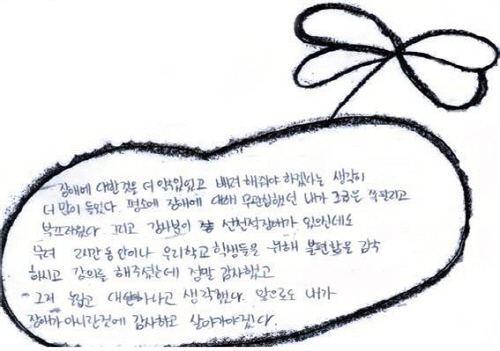 장애에 대한것을 더 알수있었고 배려 해줘야 하겠다는 생각이
더 많이 들었다. 평소에 장애에 대해 무관심했던 내가 조금은 쪽팔리고
부끄러웠다. 그리고 강사님이 선천적장애가 있으신데도
무려 2시간 동안이나 우리학교 학생들을 위해 불편함을 감수
하시고 강의를 해주셨는데 정말 감사했고
그저 놀랍고 대단하다고 생각했다. 앞으로도 내가
장애가아니란것에 감사하고 살아가야겠다.